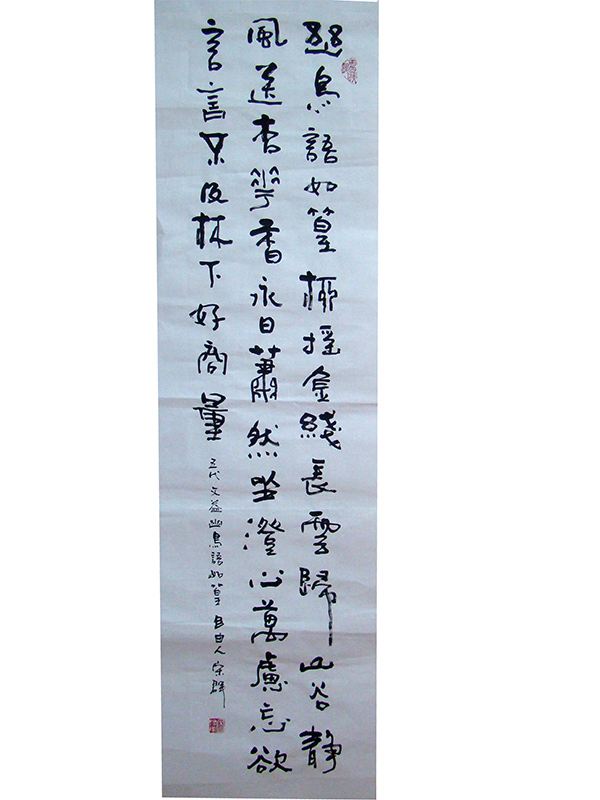 幽鳥語如篁柳搖金綫長雲歸山谷靜
風送杏花香永日蕭然坐澄心萬慮忘欲
言言不及林下好商量
五代文益幽鳥語如篁自由人宋